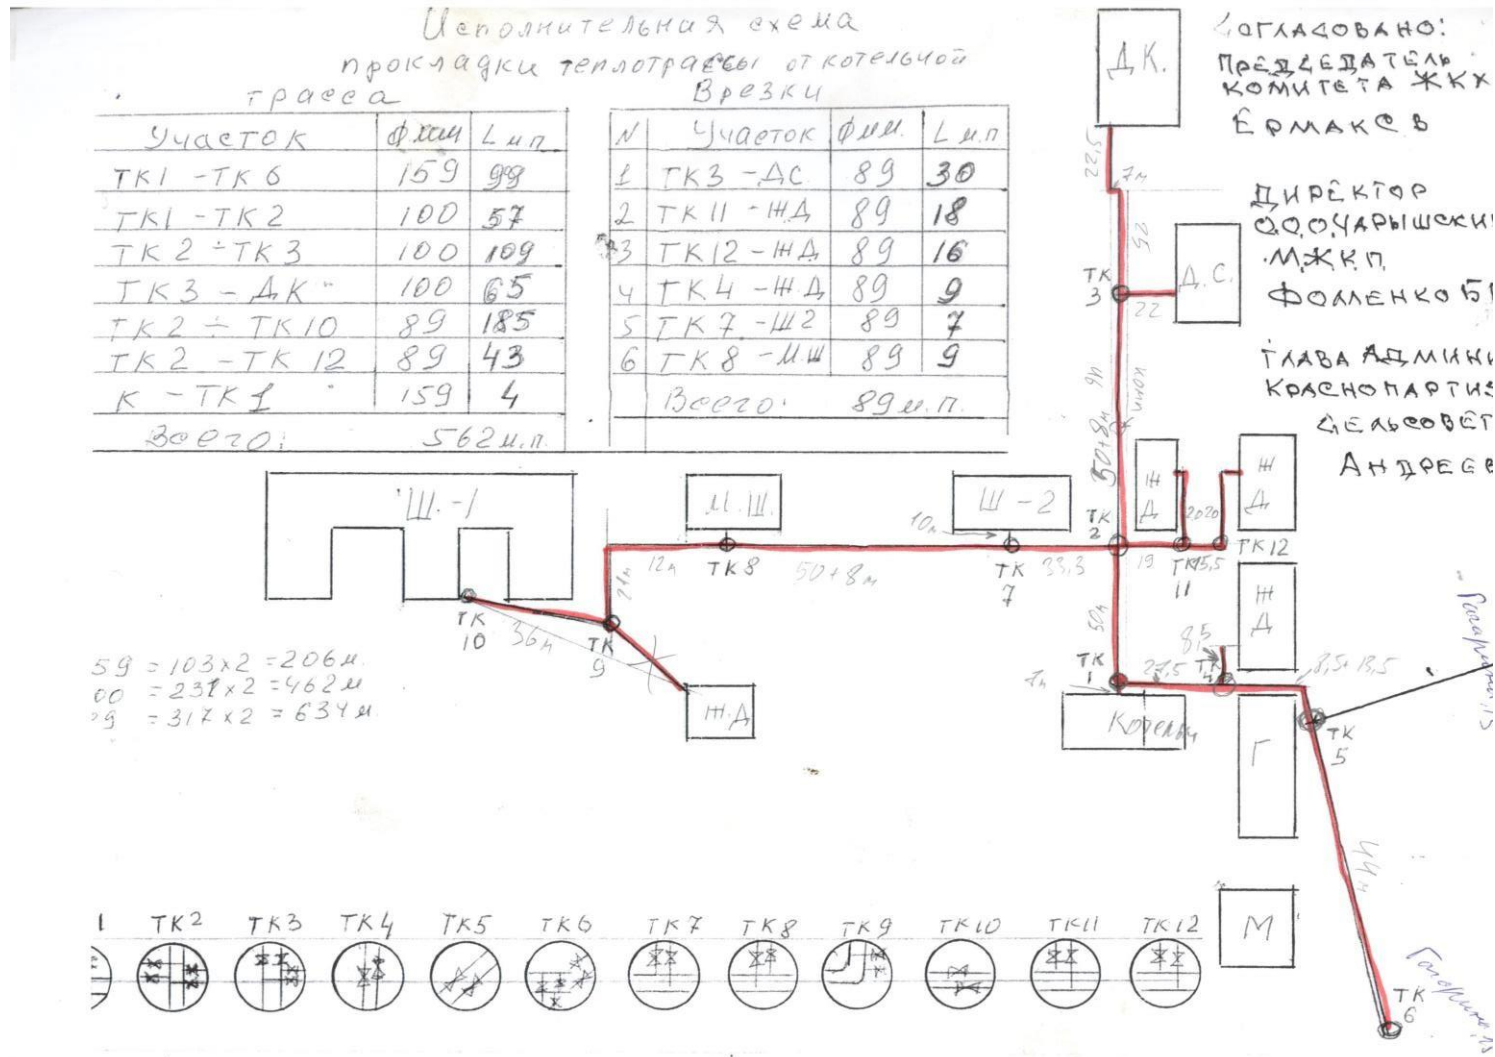 Исполнительная схема
прокладки теплотрассы от котельной
трасса
Участок Ф мм L м.п
ТК1 - ТК6 159 99
ТК1 - ТК2 100 57
ТК2 ÷ ТК3 100 109
ТК3 - ДК " 100 65
ТК2 ÷ ТК10 89 185
ТК2 - ТК12 89 43
К - ТК1 " 159 4
Всего: 562 м.п.
Врезки
N Участок Ф мм. L м.п
1 ТК3 - ДС 89 30
2 ТК11 - ЖД 89 18
3 ТК12 - ЖД 89 16
4 ТК4 - ЖД 89 9
5 ТК7 - Ш2 89 7
6 ТК8 - М.Ш 89 9
Всего: 89 м.п.
СОГЛАСОВАНО:
ПРЕДСЕДАТЕЛЬ
КОМИТЕТА ЖКХ
ЕРМАКОВ
ДИРЕКТОР
ООО ЧАРЫШСКИ
МЖКП
ГЛАВА АДМИНИ
КРАСНОПАРТИЗ
СЕЛЬСОВЕТ
АНДРЕЕВ
Д.К.
22,5
7м
25
ТК
3
22
Д.С.
46
50+8м
Ш.-1
М.Ш.
Ш-2
10м
Ж
Д
2020
Ж
Д
ТК
2
19
ТК
11
15,5
ТК12
12м
ТК8
50+8м
ТК
7
33,3
21м
ТК
10
36м
ТК
9
Ж.Д
50м
ТК
1
1м
27,5
8,5
ТК
4
Ж
Д
8,5+13,5
Котельн
Г
ТК
5
44м
М
ТК
6
59 = 103 х 2 = 206 м.
00 = 231 х 2 = 462 м
9 = 317 х 2 = 634 м.
1 ТК2 ТК3 ТК4 ТК5 ТК6 ТК7 ТК8 ТК9 ТК10 ТК11 ТК12